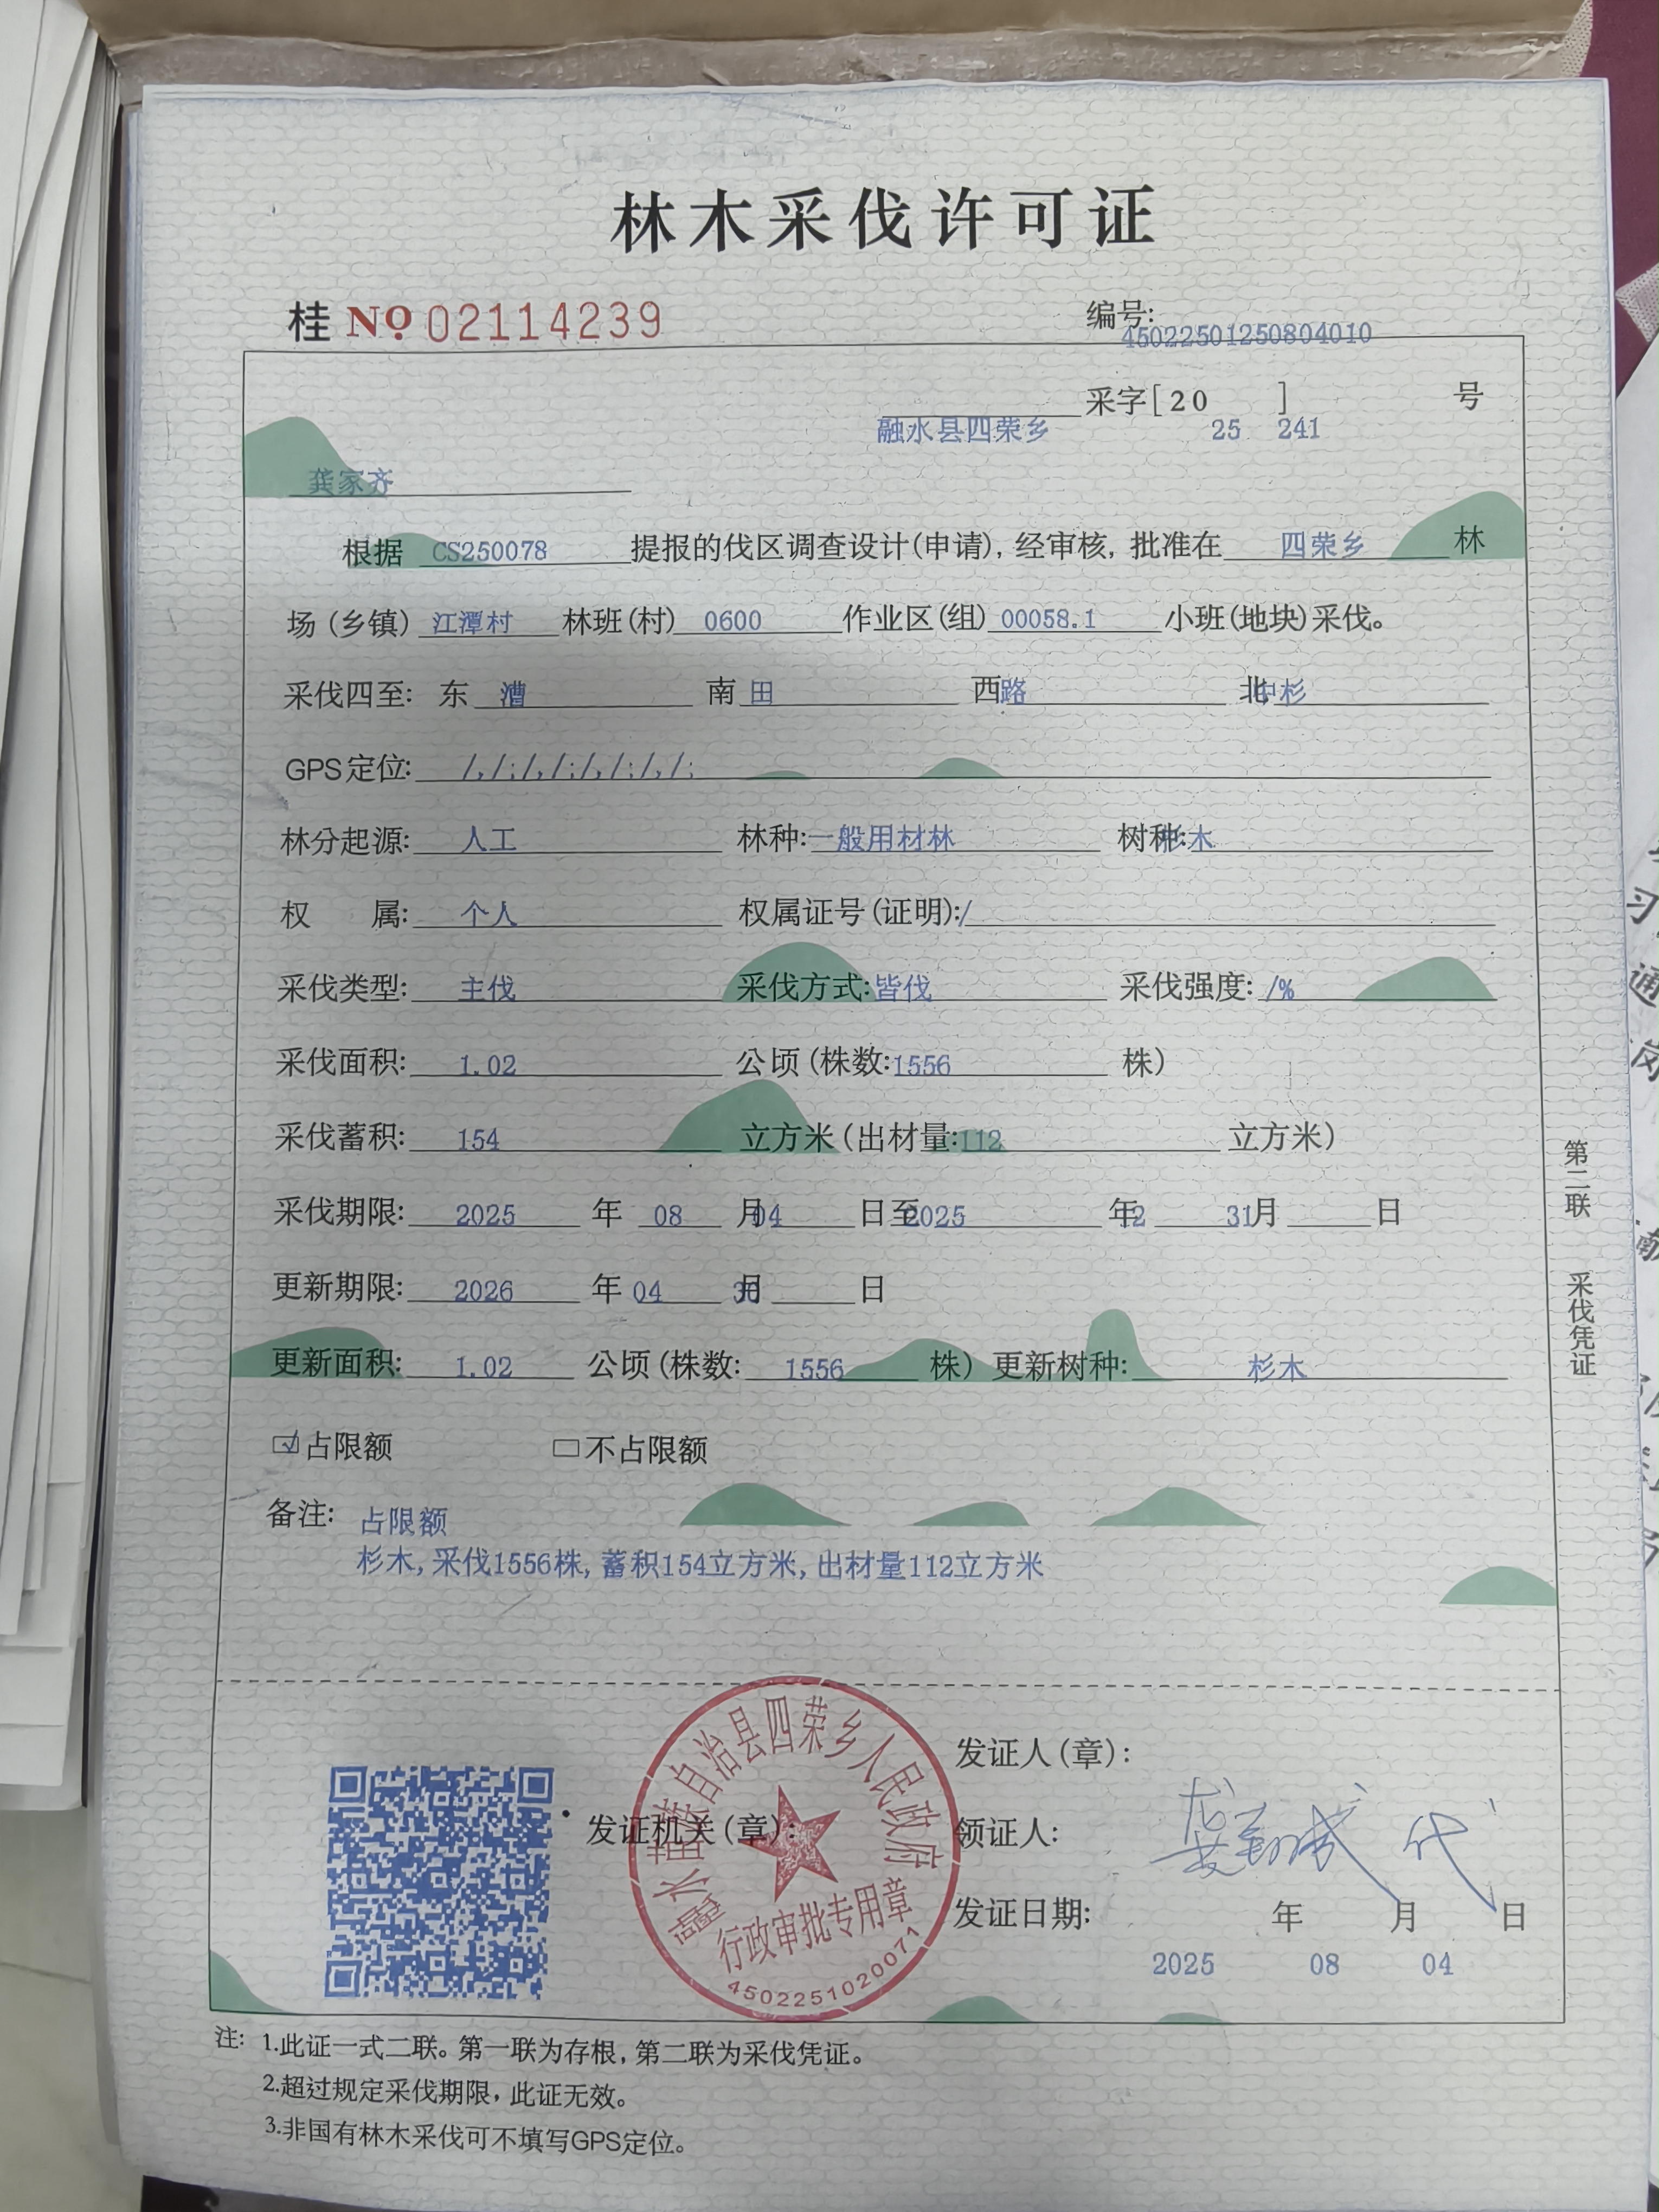 林木采伐许可证
桂 NO 02114239
编号:
450225501250804010
采字[20 ] 号
融水县四荣乡 25 241
龚家齐
根据 CS250078 提报的伐区调查设计(申请),经审核,批准在 四荣乡 林
场(乡镇) 江潭村 林班(村) 0600 作业区(组) 00058.1 小班(地块)采伐。
采伐四至: 东 漕 南 田 西 路 北 中杉
GPS定位: /,/;/,/;/,/;/,/;
林分起源: 人工 林种: 一般用材林 树种: 杉木
权 属: 个人 权属证号(证明): /
采伐类型: 主伐 采伐方式: 皆伐 采伐强度: /%
采伐面积: 1.02 公顷(株数: 1556 株)
采伐蓄积: 154 立方米(出材量: 112 立方米)
采伐期限: 2025 年 08 月 04 日至 2025 年 12 31 月 日
更新期限: 2026 年 04 月 30 日
更新面积: 1.02 公顷(株数: 1556 株) 更新树种: 杉木
☑占限额 □不占限额
备注: 占限额
杉木,采伐1556株,蓄积154立方米,出材量112立方米
第二联 采伐凭证
融水苗族自治县四荣乡人民政府
行政审批专用章
4502251020071
发证机关(章):
发证人(章):
领证人: 代
发证日期: 年 月 日
2025 08 04
注: 1.此证一式二联。第一联为存根,第二联为采伐凭证。
2.超过规定采伐期限,此证无效。
3.非国有林木采伐可不填写GPS定位。